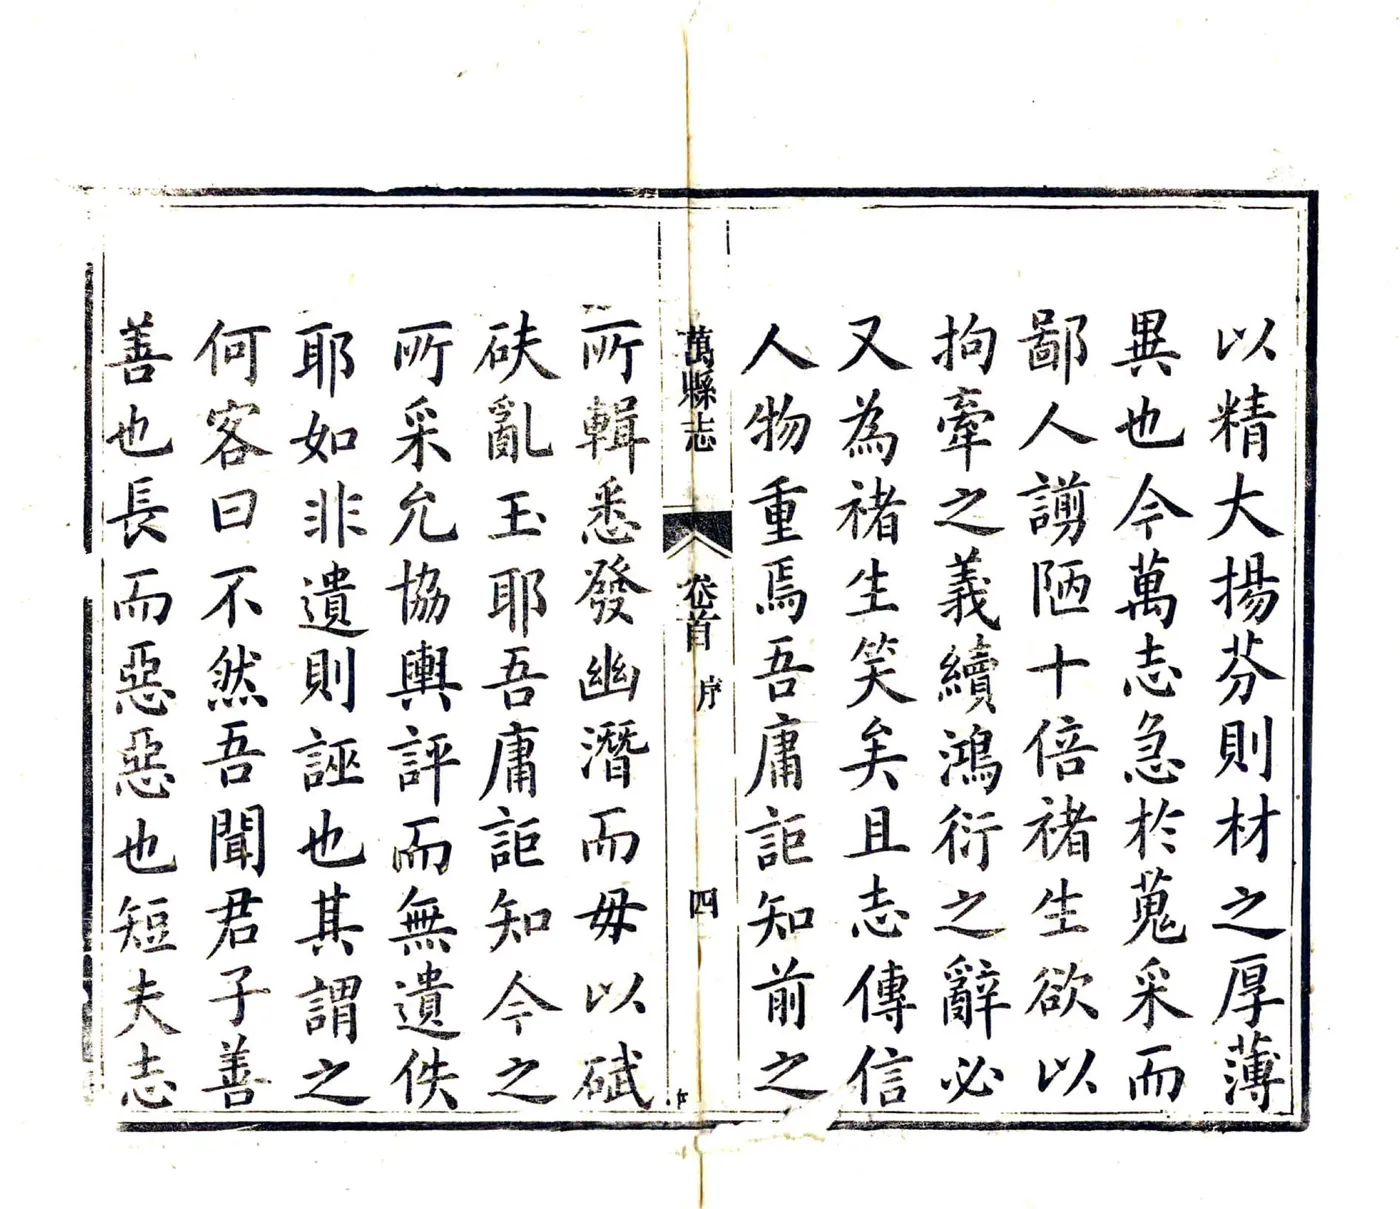 以精大揚芬則材之厚薄
異也今萬志急於蒐采而
鄙人謭陋十倍褚生欲以
拘牽之義續鴻衍之辭必
又為褚生笑矣且志傳信
人物重焉吾庸詎知前之
萬縣志 卷首 序 四
所輯悉發幽潛而毋以碔
砆亂玉耶吾庸詎知今之
所采允協輿評而無遺佚
耶如非遺則誣也其謂之
何客曰不然吾聞君子善
善也長而惡惡也短夫志